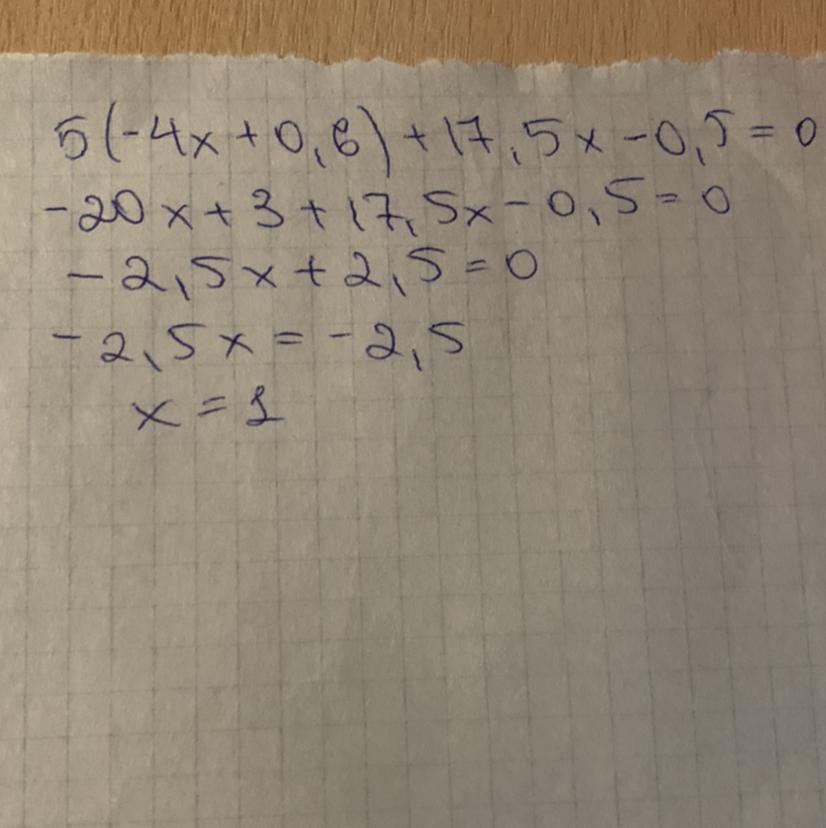 5(-4x+0,6)+17,5x-0,5=0
-20x+3+17,5x-0,5=0
-2,5x+2,5=0
-2,5x=-2,5
x=1